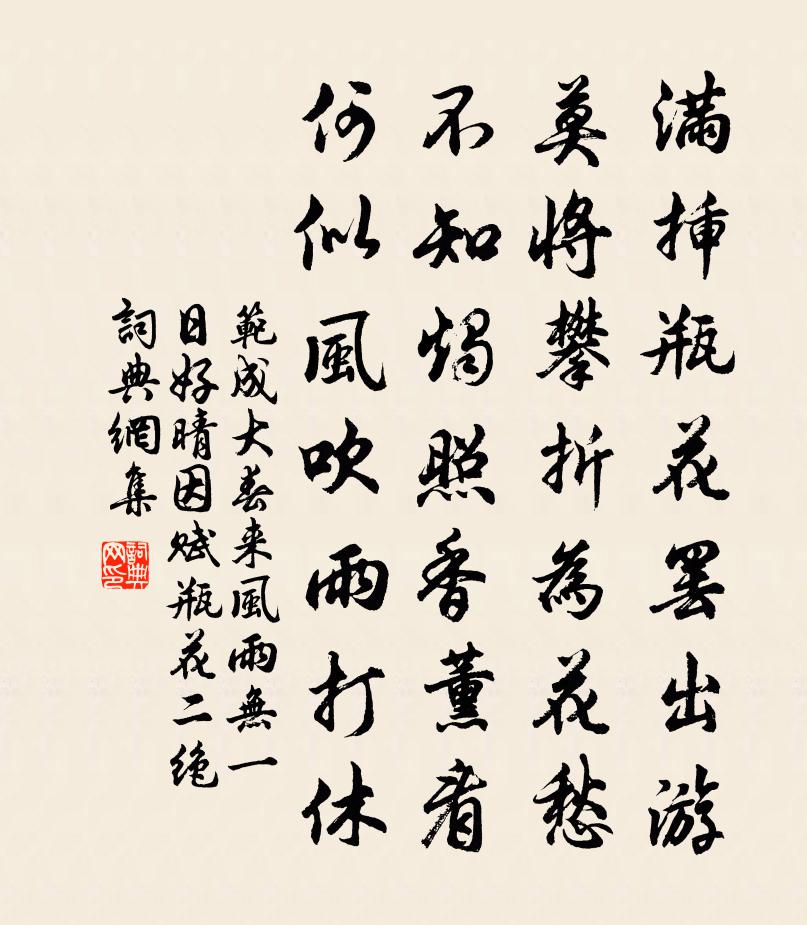 滿挿瓶花罢出游
莫將攀折為花愁
不知燭照香薰看
何似風吹雨打休
範成大春来風雨無一
日好晴因赋瓶花二绝
詞典網集
詞典网印